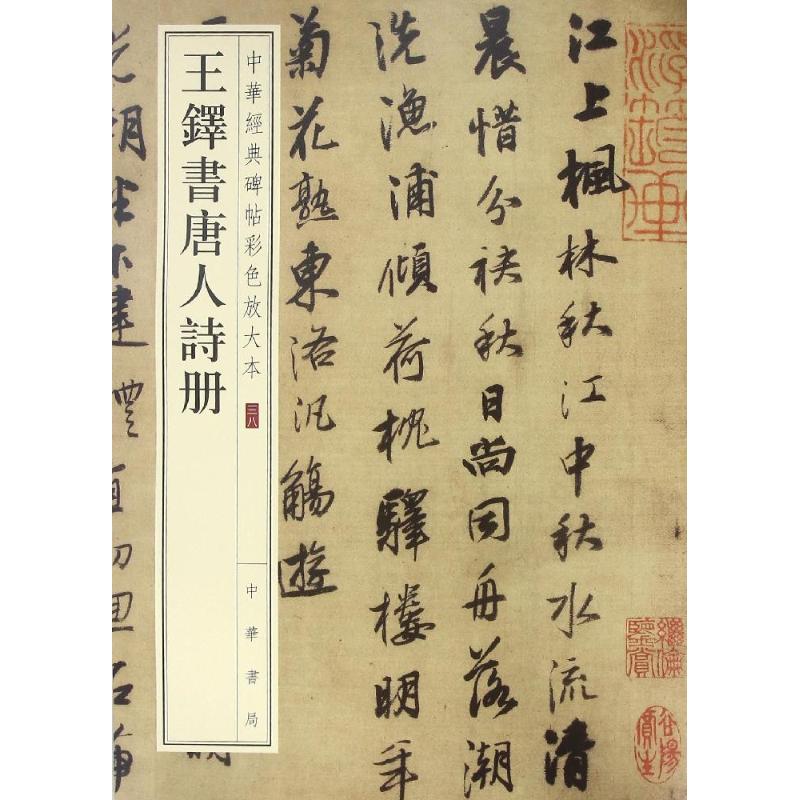 江上楓林秋江中秋水流清
晨惜分袂秋日尚同舟落潮
洗漁浦傾荷枕驛樓明年
菊花熟東洛汎觴遊
中華經典碑帖彩色放大本
三八
中華書局
王鐸書唐人詩册